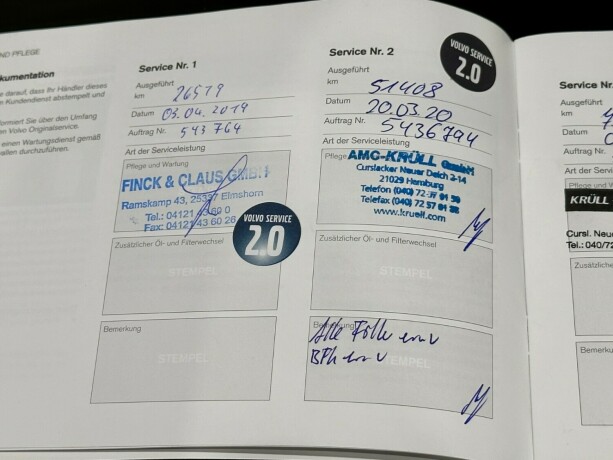 ND PFLEGE
kumentation
e darauf, dass Ihr Händler dieses
n Kundendienst abstempelt und
formiert Sie über den Umfang
en Volvo Originalservice.
einen Wartungsdienst gemäß
allen durchzuführen.
Service Nr. 1
Ausgeführt
km 26579
Datum 03.04.2019
Auftrag Nr. 543764
Art der Serviceleistung
Pflege und Wartung
FINCK & CLAUS GMBH
Ramskamp 43, 25337 Elmshorn
Tel.: 04121 43 60 0
Fax: 04121 43 60 26
VOLVO SERVICE
2.0
Zusätzlicher Öl- und Filterwechsel
STEMPEL
Bemerkung
STEMPEL
Service Nr. 2
VOLVO SERVICE
2.0
Ausgeführt
km 51408
Datum 20.03.20
Auftrag Nr. 5436794
Art der Serviceleistung
Pflege
AMC-KRÜLL GmbH
Curslacker Neuer Deich 2-14
21029 Hamburg
Telefon (040) 72
Telefax (040) 72 57 01
www.kruell.com
Zusätzlicher Öl- und Filterwechsel
STEMPEL
Bemerkung
Alle
STEMPEL
Service Nr.
Ausgeführt
km
Datum
Auftrag Nr.
Art der Service
Pflege und W
KRÜLL
Cursl. Neue
Tel.: 040/72
Zusätzlicher
Bemerkung